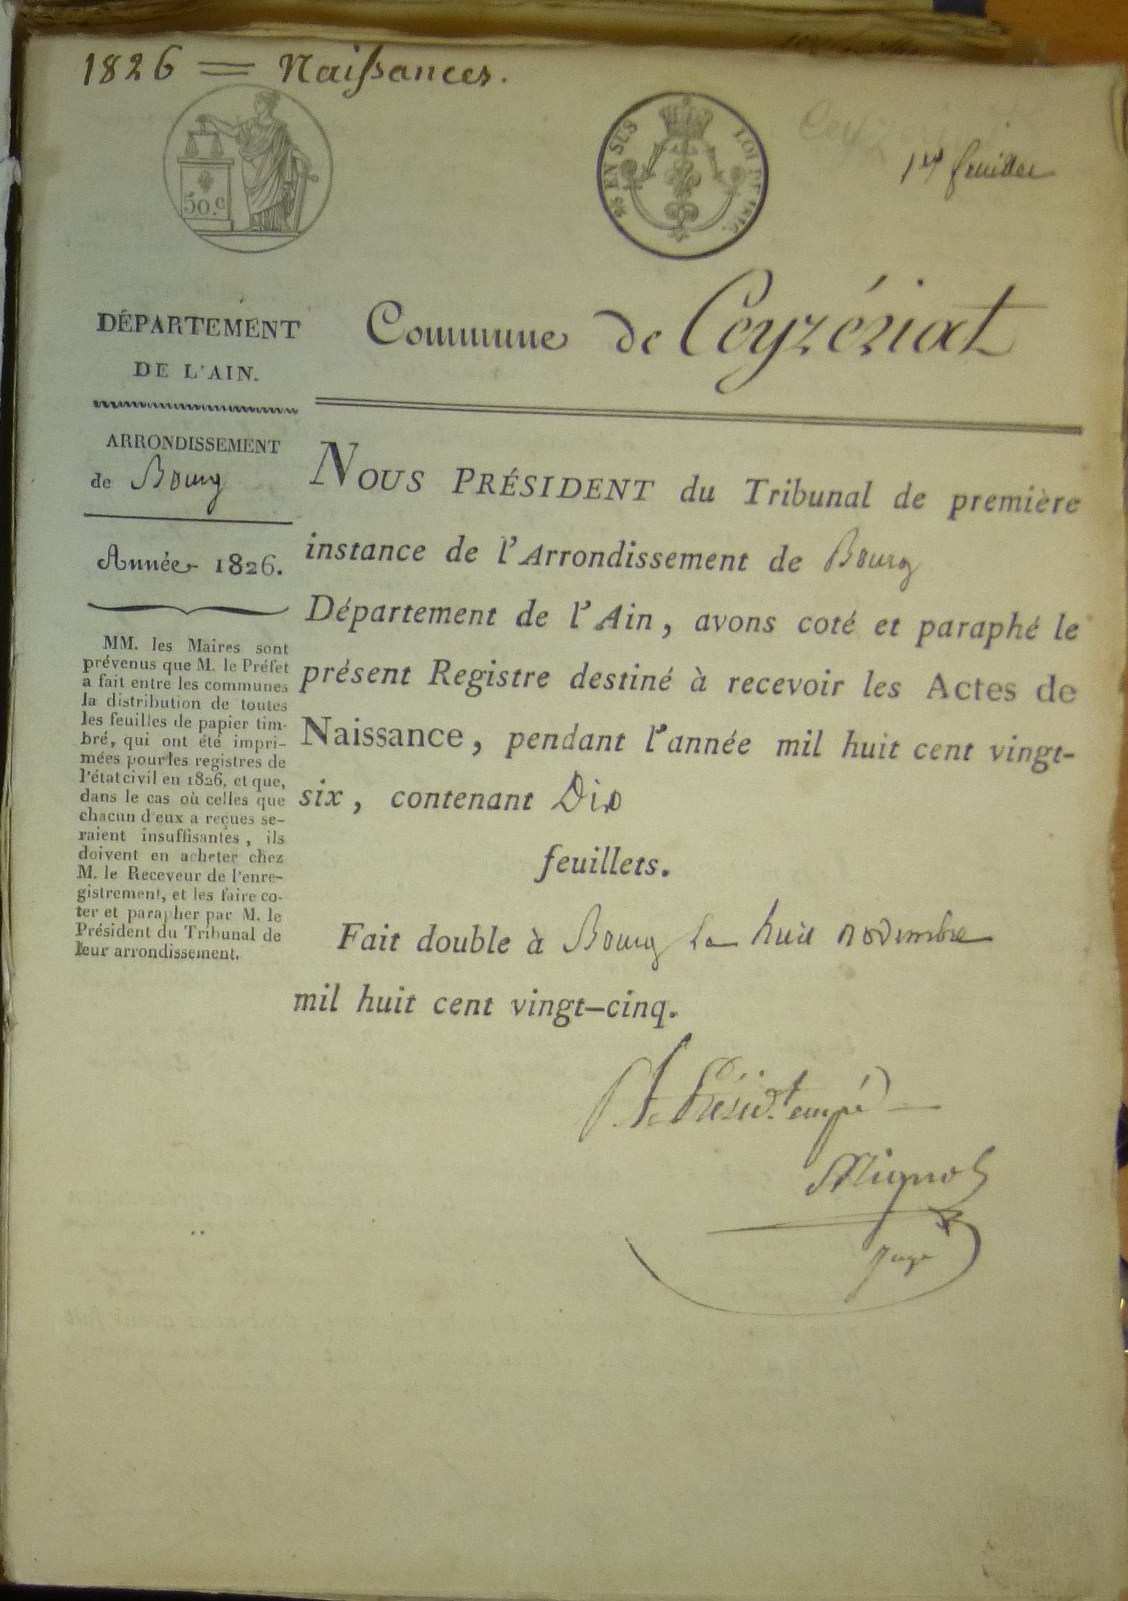 1826 = Naissances.
50.c
EN SUS
LOI DE 1816.
1er feuillet
DÉPARTEMENT
DE L'AIN.
ARRONDISSEMENT
de Bourg
Année 1826.
MM. les Maires sont
prévenus que M. le Préfet
a fait entre les communes
la distribution de toutes
les feuilles de papier tim-
bré, qui ont été impri-
mées pour les registres de
l'état civil en 1826, et que,
dans le cas où celles que
chacun d'eux a reçues se-
raient insuffisantes, ils
doivent en acheter chez
M. le Receveur de l'enre-
gistrement, et les faire co-
ter et parapher par M. le
Président du Tribunal de
leur arrondissement.
Commune de Ceyzériat
NOUS PRÉSIDENT du Tribunal de première
instance de l'Arrondissement de Bourg
Département de l'Ain, avons coté et paraphé le
présent Registre destiné à recevoir les Actes de
Naissance, pendant l'année mil huit cent vingt-
six, contenant Dix
feuillets.
Fait double à Bourg le huit novembre
mil huit cent vingt-cinq.
Le Présidt empé
Mignot
Juge